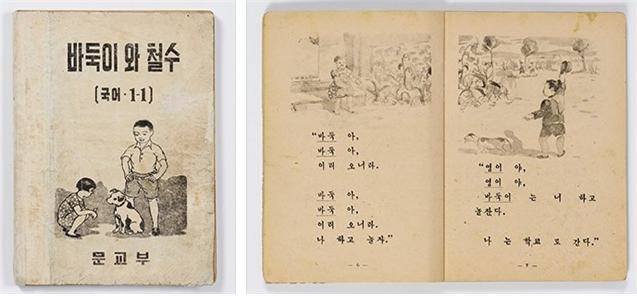 바둑이 와 철수
(국어·1-1)
문교부
"바둑 아,
바둑 아,
이리 오너라.
바둑 아,
바둑 아,
이리 오너라.
나 하고 놀자."
— 6 —
"영이 야,
영이 야,
바둑이 는 너 하고
놀잔다.
나 는 학교 도 간다."
— 7 —